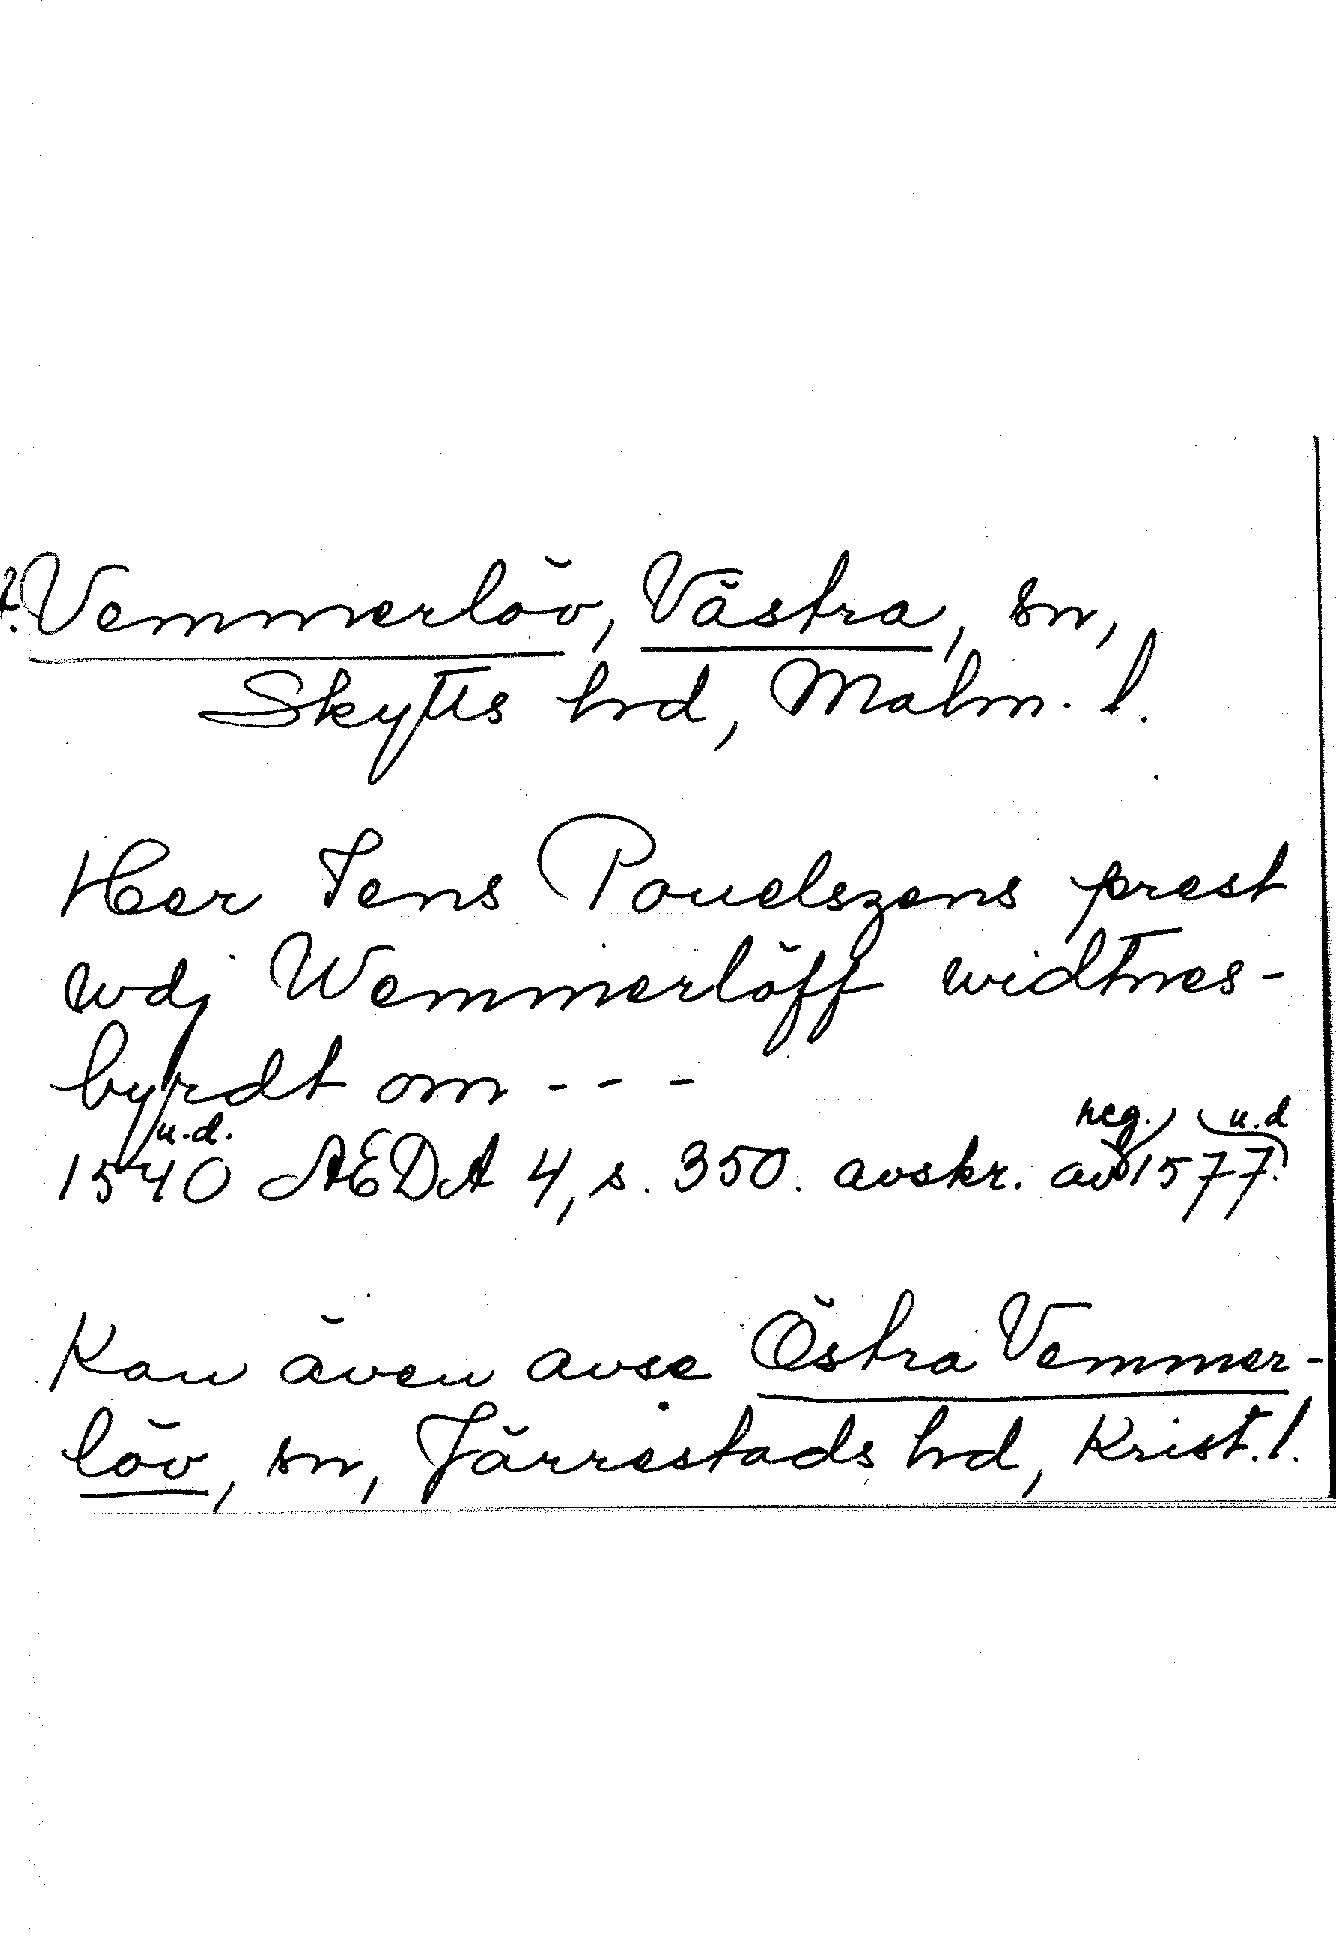 ?. Vemmerlöv, Västra, sn,
Skytts hd, Malm. l.
Her Jens Pouelszens prest
wdj Wemmerlöff widtnes-
byrdt om - - -
1540 u.d. AEDA 4, s. 350. avskr. av reg. 1577 u.d.
Kan även avse Östra Vemmer-
löv, sn, Järrestads hd, Krist. l.